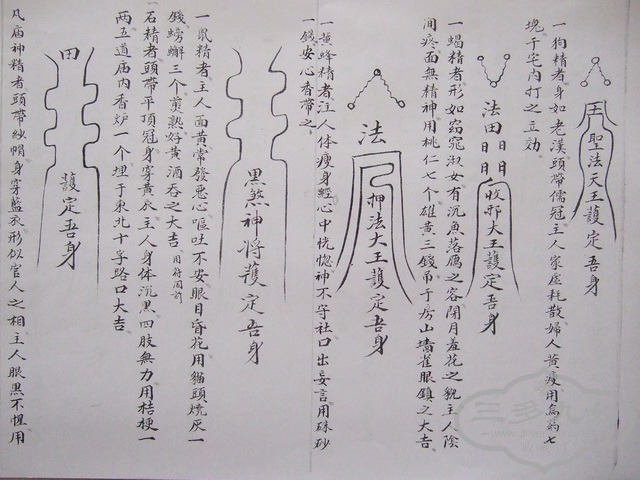 聖法天王護定吾身
一狗精者身如老漢頭帶儒冠主人家虛耗散婦人黃瘦用烏药七
塊于宅內打之立効
法田日日日日收邪大王護定吾身
一蝎精者形如窈窕淑女有沉魚落鴈之容閉月羞花之貌主人陰
间疼面無精神用桃仁七个雄黃三錢吊于房山墻雀眼鎮之大吉
法押法大王護定吾身
一黃蜂精者注人体瘦身經心中恍惚神不守社口出妄言用硃砂
一錢安心香帶之
黑煞神将護定吾身
一鼠精者主人面黃常發惡心嘔吐不安眼目昏花用貓頭燒灰一
錢螃蠏三个煎熟好黃酒吞之大吉用符同前
石精者頭帶平頂冠身穿黃衣主人身体沉黑四肢無力用桔梗一
两五道庙内香炉一个埋于東北十字路口大吉
田護定吾身
凡庙神精者頭帶紗帽身穿藍衣形似官人之相主人眼黑不惺用
三多